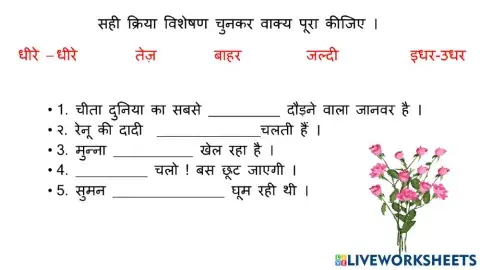 सही क्रिया विशेषण चुनकर वाक्य पूरा कीजिए ।
धीरे – धीरे तेज़ बाहर जल्दी इधर-उधर
• 1. चीता दुनिया का सबसे __________ दौड़ने वाला जानवर है ।
• २. रेनू की दादी ______________चलती हैं ।
• 3. मुन्ना ___________ खेल रहा है ।
• 4. __________ चलो ! बस छूट जाएगी ।
• 5. सुमन _______________ घूम रही थी ।
LIVEWORKSHEETS